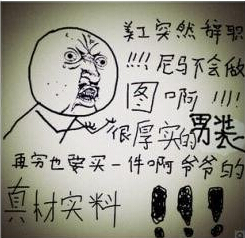 美工突然辞职
!!!! 尼马不会做
图啊 !!!!
很厚实的男装
再穷也要买一件啊 爷爷的
真材实料 !!!